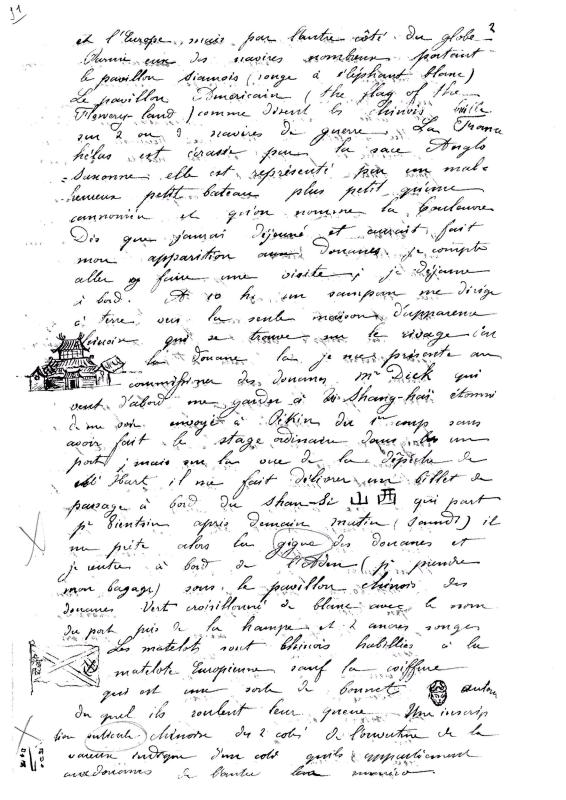 91
2
et l'Europe, mais par l'autre côté du globe
Parmi eux des navires nombreux portant
le pavillon siamois (rouge à éléphant blanc)
Le pavillon Américain (the flag of the
Flowery land) comme disent les chinois brille
sur 2 ou 3 navires de guerre. La France
hélas est écrasée par la race Anglo
Saxonne elle est représenté par un mal=
heureux petit bateau plus petit qu'une
cannonière et qu'on nomme la Couleuvre
Dès que j'aurai déjeuné et aurait fait
mon apparition aux douanes je compte
aller y faire une visite; je déjeune
à bord. A 10 h. un sampan me dirige
à terre vers la seule maison d'apparence
chinoise qui se trouve sur le rivage c'est
la douane là je me présente au
commissaire des douanes Mr Dick qui
veut d'abord me garder à Shang-haï étonné
de me voir envoyé à Pékin du 1er coup sans
avoir fait le stage ordinaire dans un
port; mais sur la vue de la dépêche de
Mr Hart il me fait délivrer un billet de
passage à bord du Shan-Si 山西 qui part
pr Tientsin après demain matin (samedi) il
me prête alors la gigue des douanes et
je rentre à bord de l'Adour (pr prendre
mon bagage) sous le pavillon chinois des
douanes vert croisillonné de blanc avec le nom
du port près de la hampe et 2 ancres rouges
Les matelots sont chinois habillés à la
matelote Européenne sauf la coiffure
qui est une sorte de bonnet autour
du quel ils roulent leur queue. Une inscrip
tion chinoise des 2 cotés de l'ouverture de la
vareuse indique d'un coté qu'ils appartiennent
aux douanes de l'autre leur numéro.